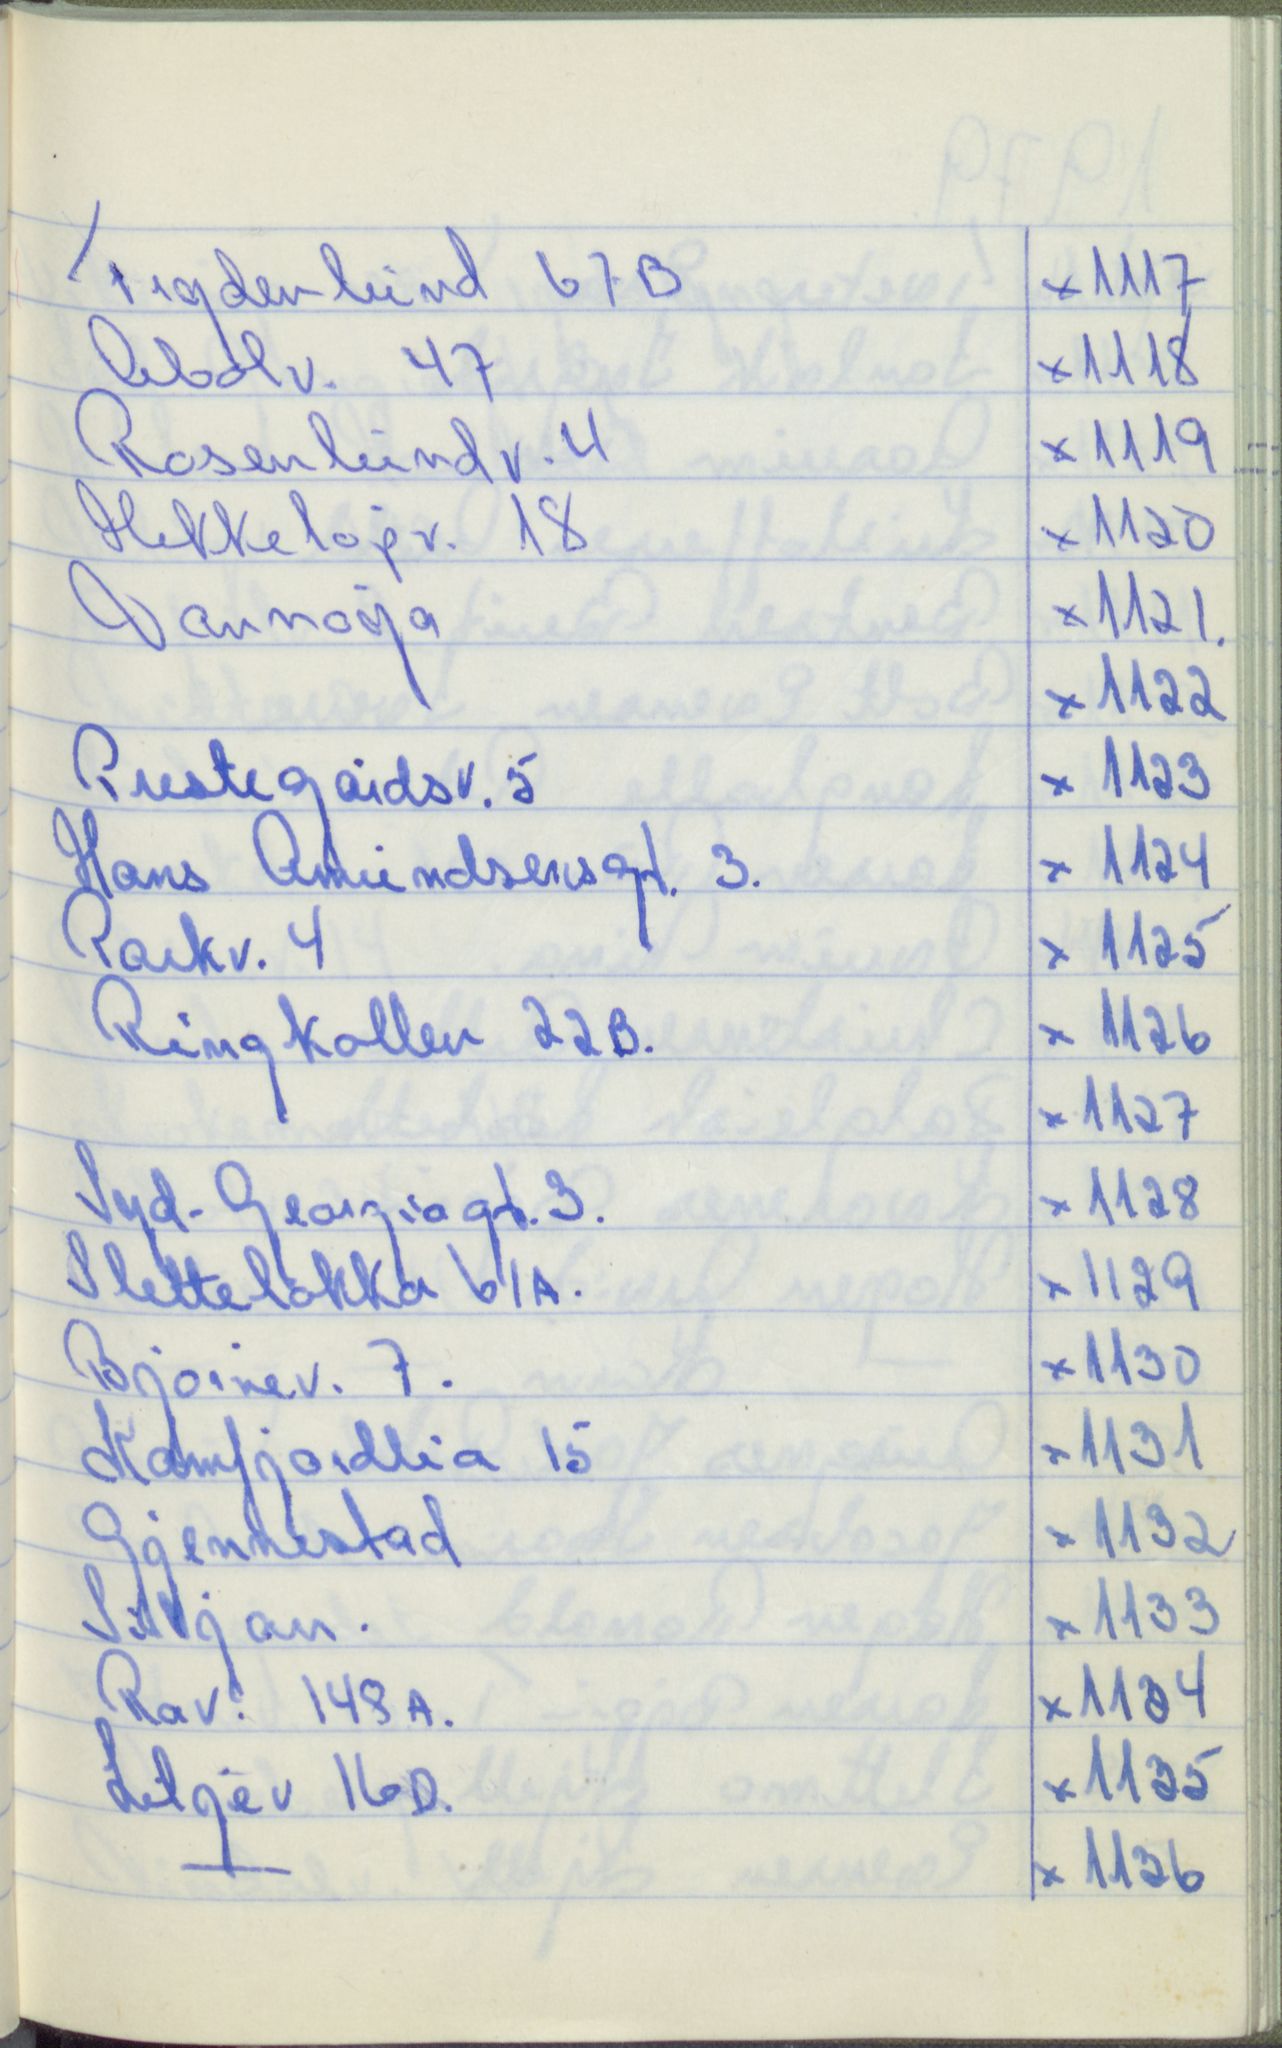 Trydenlund 67B x 1117
Abolv. 47 x 1118
Rosenlundv. 4 x 1119
Hekkeløpv. 18 x 1120
Vannøya x 1121.
x 1122
Prestegårdsv. 5 x 1123
Hans Amundsensgt. 3. x 1124
Parkv. 4 x 1125
Ringkollen 22B. x 1126
x 1127
Syd-Georgiagt. 3. x 1128
Sletteløkka 61A. x 1129
Bjørnev. 7. x 1130
Kamfjordlia 15 x 1131
Gjennestad x 1132
Siljan. x 1133
Rav. 148A. x 1134
Liljev 16D. x 1135
— x 1136